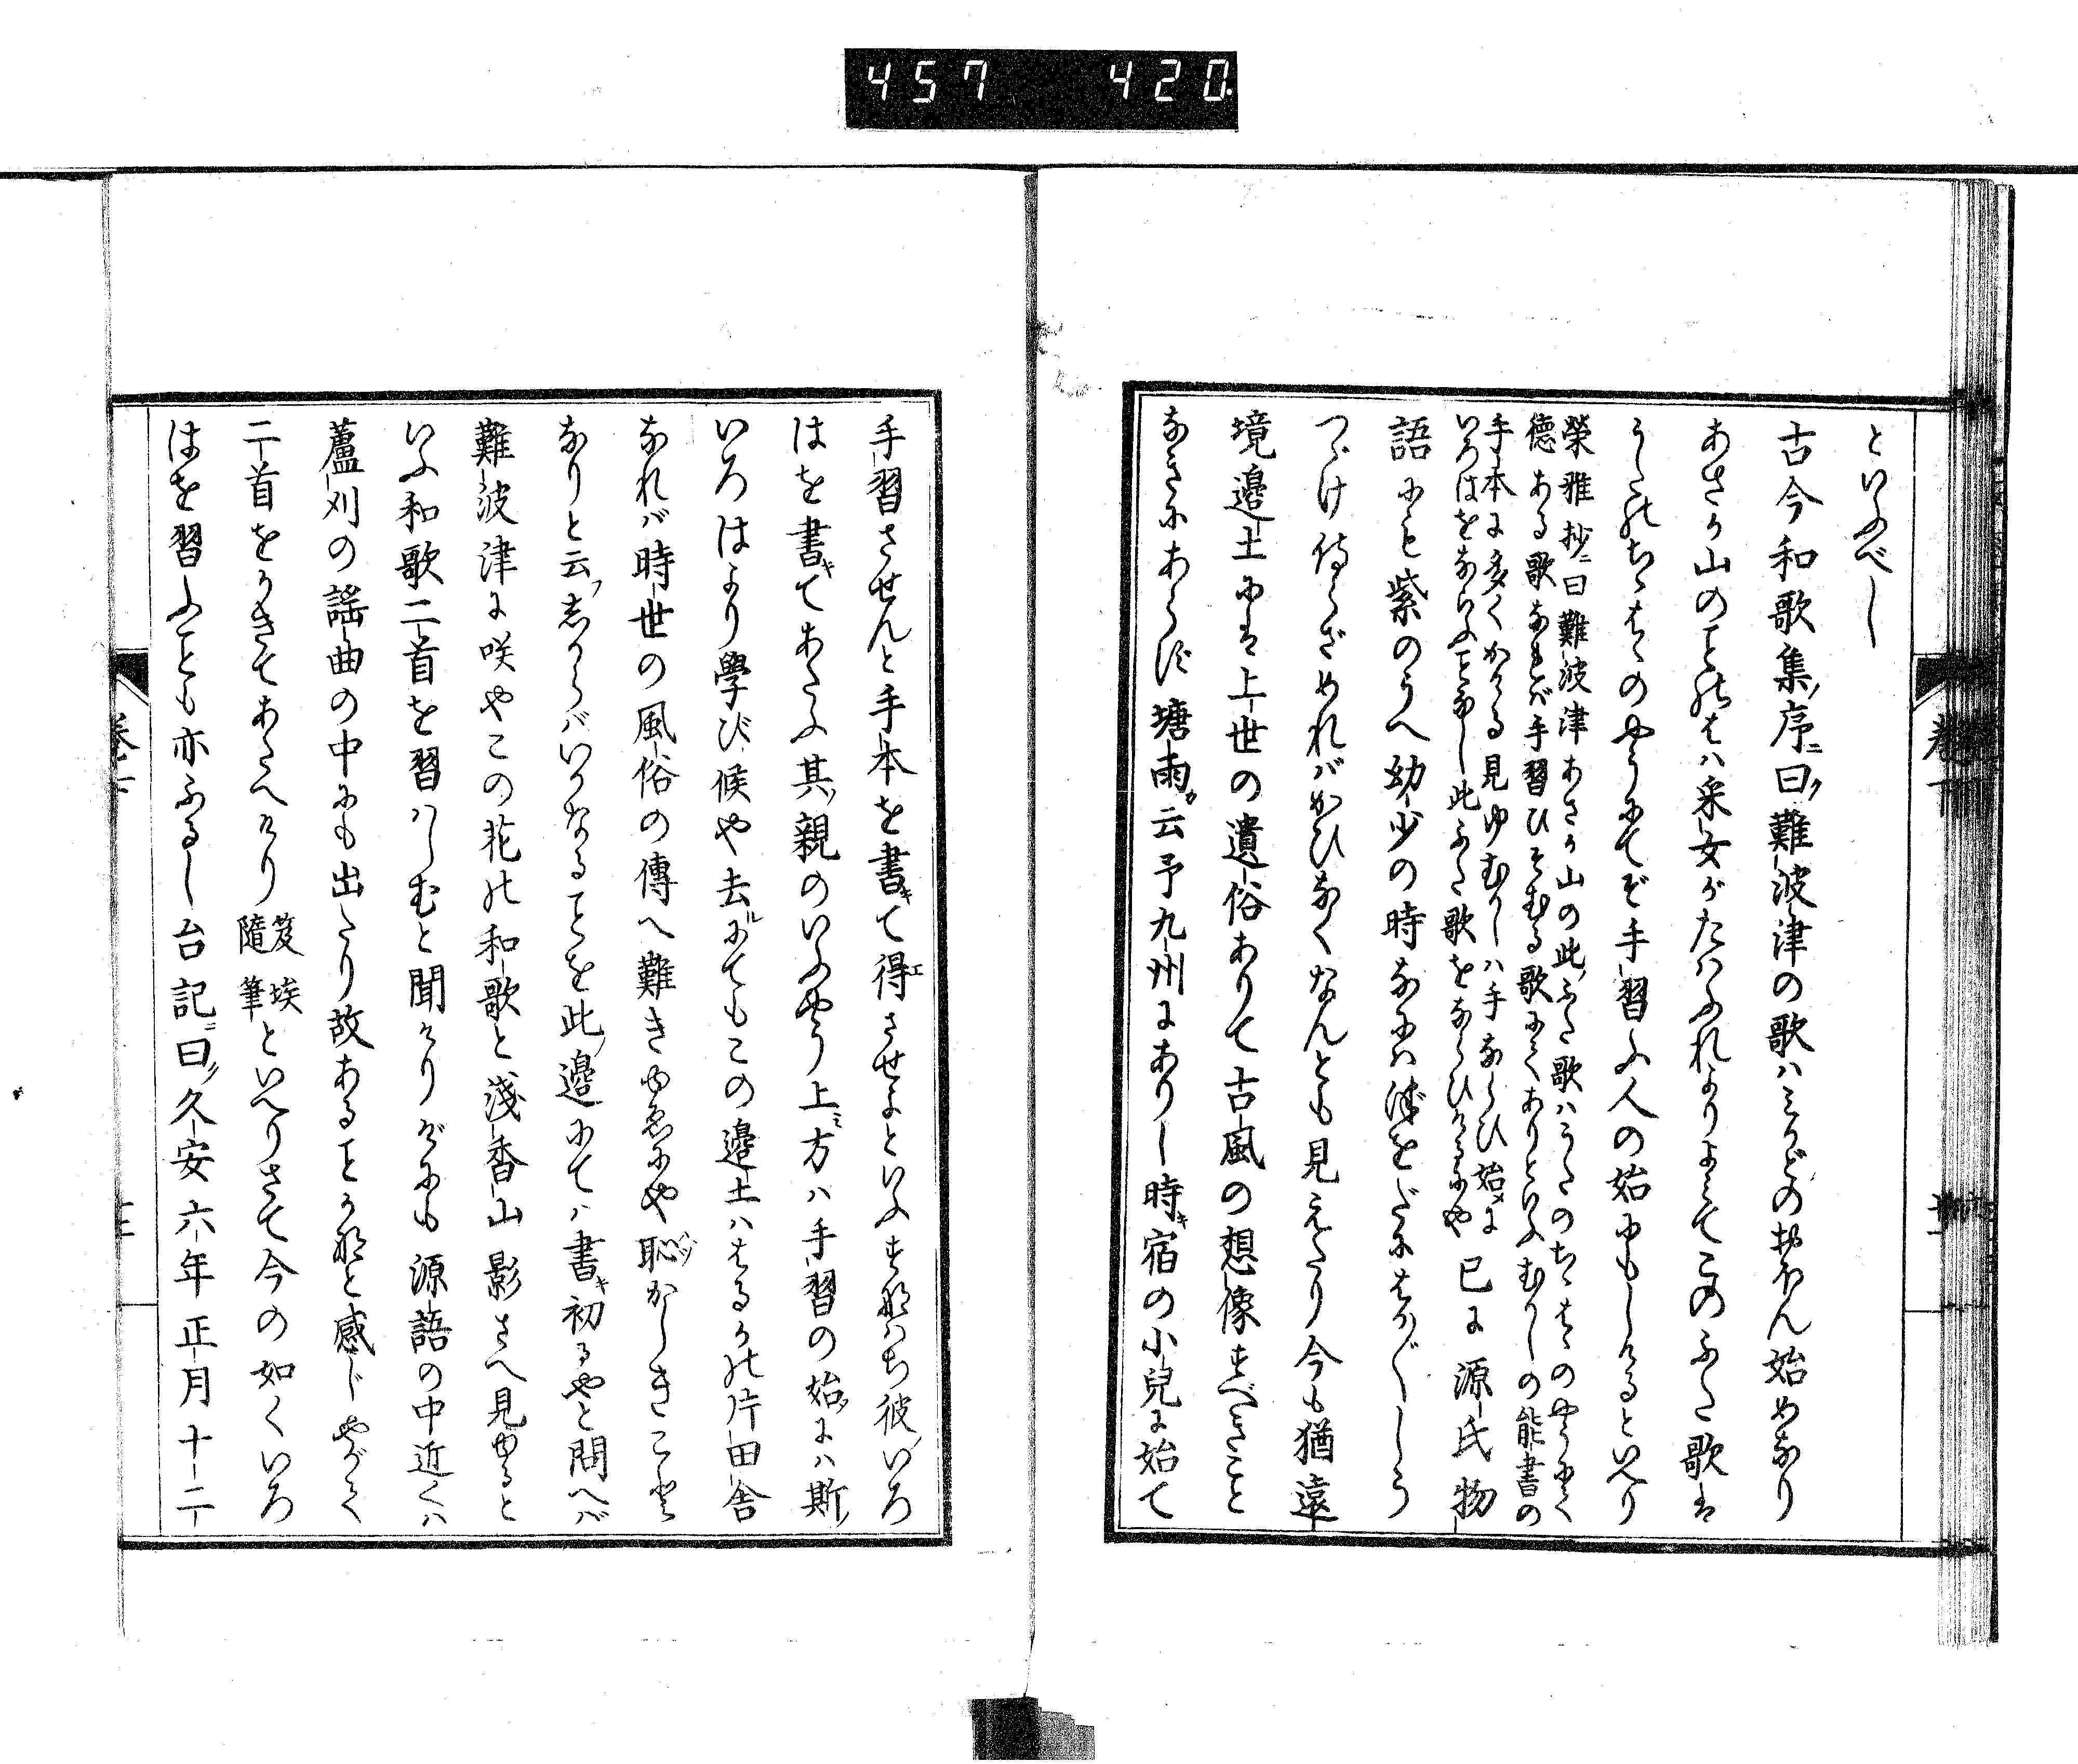 457 420
といふべし
古今和歌集ノ序ニ曰ク難波津の歌ハみかどのおほん始めなり
あさか山のことばハ采女がたハふれよりよみてこのふた歌は
うたのちゝはゝのやうにてぞ手習ふ人の始にもしけるといへり
榮雅抄ニ曰難波津あさか山の此ノふた歌ハうたのちゝはゝのやうにて
徳ある歌なれバ手習ひそむる歌にてありといふむかしの能書の
手本に多くかゝる見ゆむかしハ手ならひ始メに
いろはをならふことなし此ふた歌をならひけるにや
已に源氏物
語にも紫のうへ幼少の時なにハ津をだにはかゞしう
つゞけ侍らざめれバかひなくなんとも見えたり今も猶遠
境邊土にハ上世の遺俗ありて古風の想像すべきこと
なきにあらず塘雨ガ云予九州にありし時キ宿の小兒に始て
手習させんと手本を書キて得エさせよといふすなハち彼ノいろ
はを書キてあたふ其ノ親のいふやう上ミ方ハ手習の始メにハ斯ノ
いろはより學び候や去ルにてもこの邊土ハはるかの片田舎
なれバ時世の風俗の傳へ難きゆゑにや恥ハヅかしきこと
なりと云フしからバいかなることを此ノ邊にてハ書キ初るやと問へバ
難波津に咲やこの花の和歌と淺香山影さへ見ゆると
いふ和歌二首を習ハしむと聞けりげにも源語の中近くハ
蘆刈の謡曲の中にも出たり故あることかなと感じやがて
二首をかきてあたへけり
笈埃
隨筆
といへりさて今の如くいろ
はを習ふことも亦ふるし台記ニ曰ク久安六年正月十二
卷下
卷下